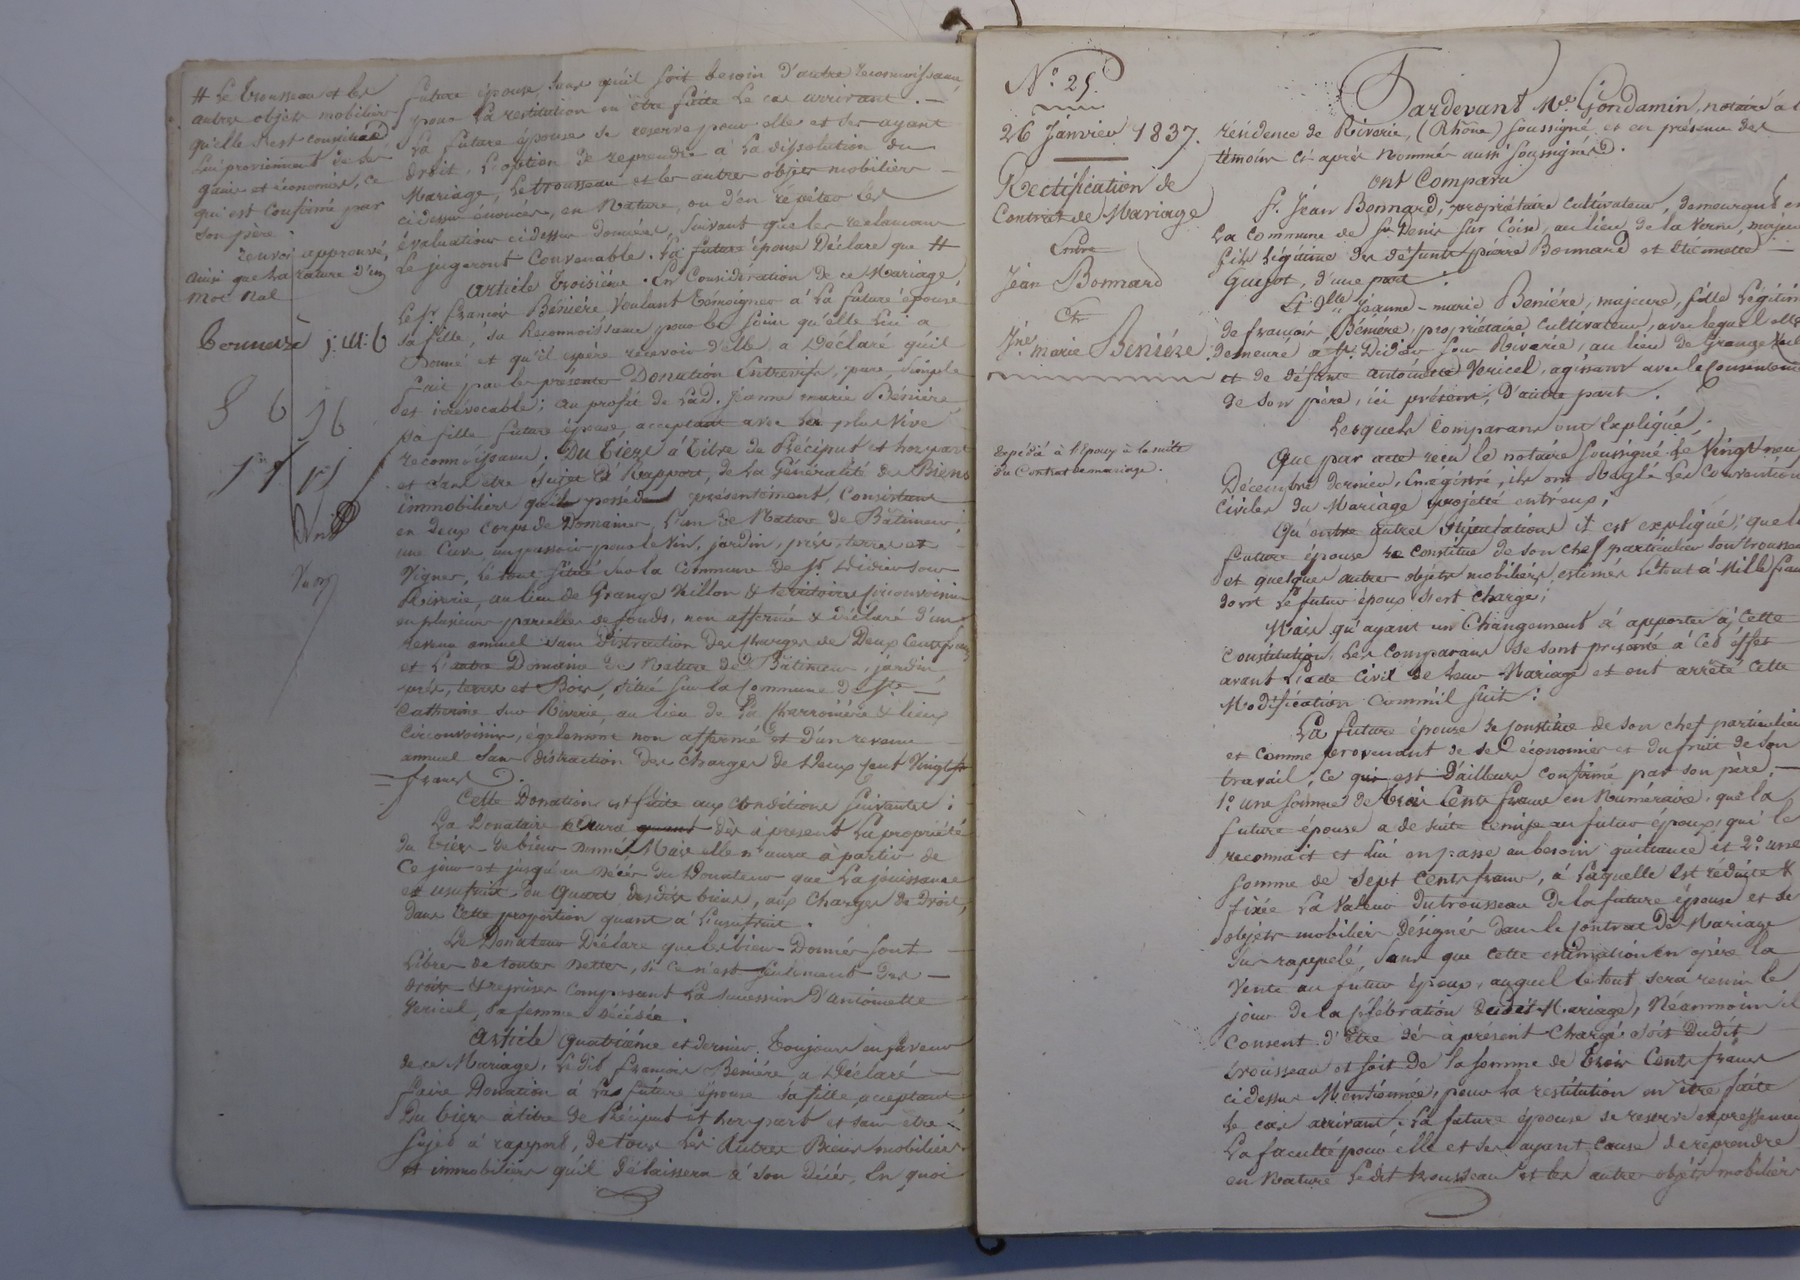 # Le trousseau et les
autres objets mobiliers
qu'elle s'est constitué
lui proviennent de ses
gains et économies, ce
qui est confirmé par
son père.
renvoi approuvé,
ainsi que la rature d'un
mot nul
future épouse, sans qu'il soit besoin d'autre reconnaissance
pour la restitution en être faite le cas arrivant. —
La future épouse se reserve pour elle et ses ayant
droit, l'option de reprendre à la dissolution du
Mariage, le trousseau et les autres objets mobiliers
cidessus énoncés, en Nature, ou d'en répéter les
évaluations cidessus données, suivant que les reclamans
le jugeront convenable. La future épouse Déclare que #
Article troisième. En Consideration de ce Mariage,
Le Sr françois Bénière voulant témoigner à la future épouse
sa fille, sa reconnoissance pour les soins qu'elle lui a
donné et qu'il espère recevoir d'elle, a Déclaré qu'il
fait par les présentes Donation Entrevifs, pure, simple
et irrévocable; au profit de Lad. Jeanne marie Bénière
sa fille future épouse, acceptant avec la plus vive
reconnoissance. Du tiers à titre de Préciput et hors part
et sans être sujet à Rapport, de la Généralité des Biens
immobiliers qu'il possède présentement, Consistant
en deux corps de Domaines, L'un de Nature de Bâtimens
une Cuve, un pressoir pour le vin, jardin, prés, terres et
vignes, le tout situé sur la Commune de St Didier sous
Riverie, au lieu de Grange Villon & territoires circonvoisins
en plusieurs parcelles de fonds, non affermé & déclaré d'un
revenu annuel sans Distraction des charges de Deux Cents francs
et L'autre Domaine de Nature de Bâtimens, jardin
prés, terres et Bois, situé sur la Commune de Ste
Catherine sur Riverie, au lieu de la Charroinière & lieux
Circonvoisins, également non affermé et d'un revenu
annuel sans distraction des charges de Deux Cent Vingt
francs.
Cette Donation est faite aux conditions suivantes:
La Donataire aura dès à present la propriété
du tiers de biens donnés, Mais elle n'aura à partir de
ce jour et jusqu'au Décès du Donateur que la jouissance
et usufruit du quart desdits biens, aux charges de Droit,
dans cette proportion quant à l'usufruit.
Le Donateur Déclare que les biens Donnés sont
libres de toutes Dettes, si ce n'est seulement des
droits & reprises composant la succession d'antoinette
Vericel, sa femme décédée.
Article quatrième et dernier. Toujours en faveur
de ce Mariage, Ledit françois Bénière a Déclaré
faire Donation à la future épouse sa fille, acceptant
Du tiers à titre de Préciput et hors part et sans être
sujet à rapport, de tous les Autres Biens mobiliers
et immobiliers qu'il Délaissera à son Décès, En quoi
N° 25.
26 Janvier 1837.
Rectification de
Contrat de Mariage
Entre
Jean Bonnard
Et
Jne marie Bénière
Expédié à l'époux à la suite
du Contrat de mariage.
Pardevant Me Gondamin, notaire à la
résidence de Riverie, (Rhône) soussigné, et en présence des
témoins ci après Nommés aussi soussignés.
ont Comparu
Sr. Jean Bonnard, propriétaire cultivateur, demeurant en
la commune de St Denis sur Coise, au lieu de la Verne, majeur
fils Légitime des défunts pierre Bonnard et Etiennette
Guyot, d'une part.
Et Dlle Jeanne-marie Benière, majeure, fille Légitime
de françois Bénière, propriétaire cultivateur, avec lequel elle
demeure à St Didier sous Riverie, au lieu de Grange
et de défunte antoinette Vericel, agissant avec le consentement
de son père, ici présent, D'autre part.
Lesquels Comparans ont Expliqué.
Que par acte reçu le notaire soussigné, Le Vingt neuf
Décembre dernier, Enrégistré, ils ont Réglé Les Conventions
Civiles du Mariage projetté entr'eux;
Qu'entre autres stipulations il est expliqué, que la
future épouse se constitue de son chef particulier son trousseau
et quelques autres objets mobiliers, estimés le tout à Mille francs
dont le futur époux s'est chargé;
Mais qu'ayant un Changement à apporter à cette
constitution, les Comparans se sont présenté à cet effet
avant L'acte Civil de leur Mariage et ont arrêté cette
Modification Comm'il suit:
La future épouse se constitue de son chef particulier
et comme provenant de ses économies et du fruit de son
travail, ce qui est D'ailleurs confirmé par son père,
1° une somme de trois Cents francs en Numéraire, que la
future épouse a de suite remise au futur époux, qui le
reconnait et lui en passe au besoin quittance; et 2° une
somme de sept Cents francs, à laquelle est réduite &
fixée la valeur du trousseau de la future épouse et des
objets mobiliers Désignés dans le Contrat de Mariage
sus rappelé, sans que cette estimation en opère la
vente au futur époux, auquel le tout sera remis le
jour de la Célébration dudit Mariage, Néanmoins il
Consent d'être dès à présent Chargé, soit Dudit
trousseau et soit de la somme de trois cents francs
cidessus Mentionnée, pour la restitution en être faite
le cas arrivant. La future épouse se reserve expressement
La faculté pour elle et ses ayant Cause de reprendre
en Nature Ledit trousseau et les autres objets mobiliers